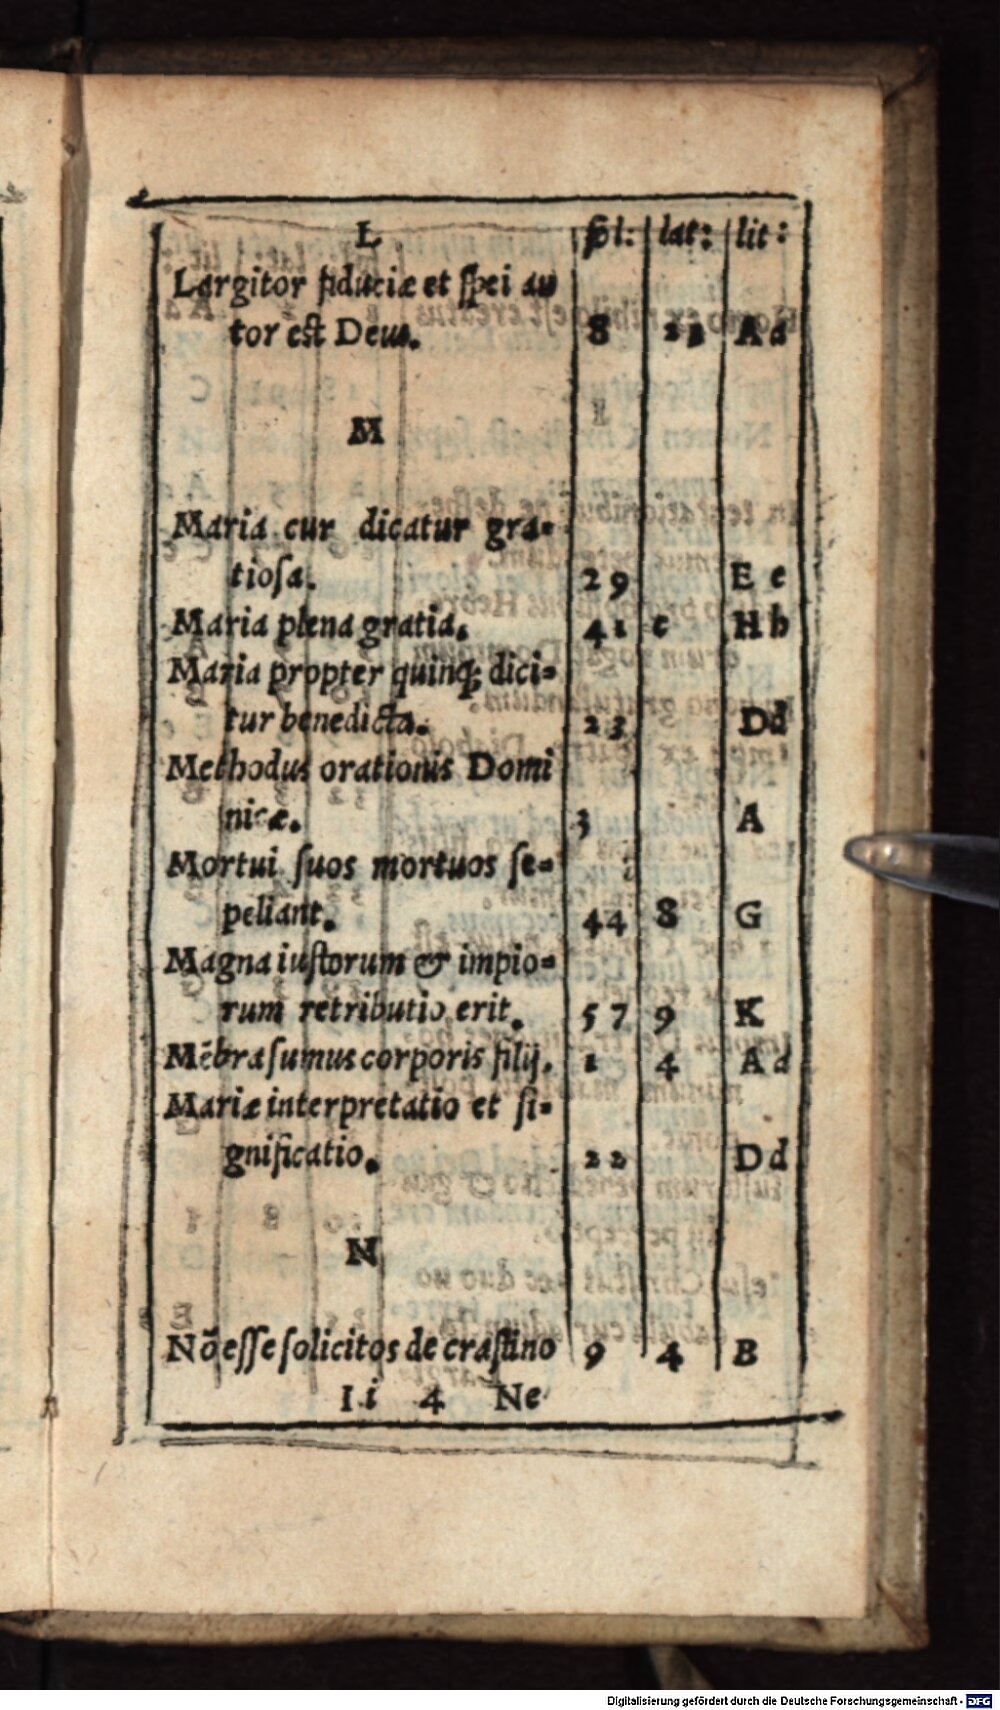 L fol: lat: lit:
Largitor fiduciæ et spei au
tor est Deus. 8 23 Aa
M
Maria cur dicatur gra=
tiosa. 29 Ee
Maria plena gratia. 41 c Hh
Maria propter quinq; dici=
tur benedicta. 23 Dd
Methodus orationis Domi
nicæ. 3 A
Mortui suos mortuos se=
peliant. 44 8 G
Magna iustorum & impio=
rum retributio erit. 57 9 K
Mẽbra sumus corporis filij. 1 4 Aa
Mariæ interpretatio et si=
gnificatio. 22 Dd
N
Nõ esse solicitos de crastino 9 4 B
Ii 4 Ne
Digitalisierung gefördert durch die Deutsche Forschungsgemeinschaft - DFG